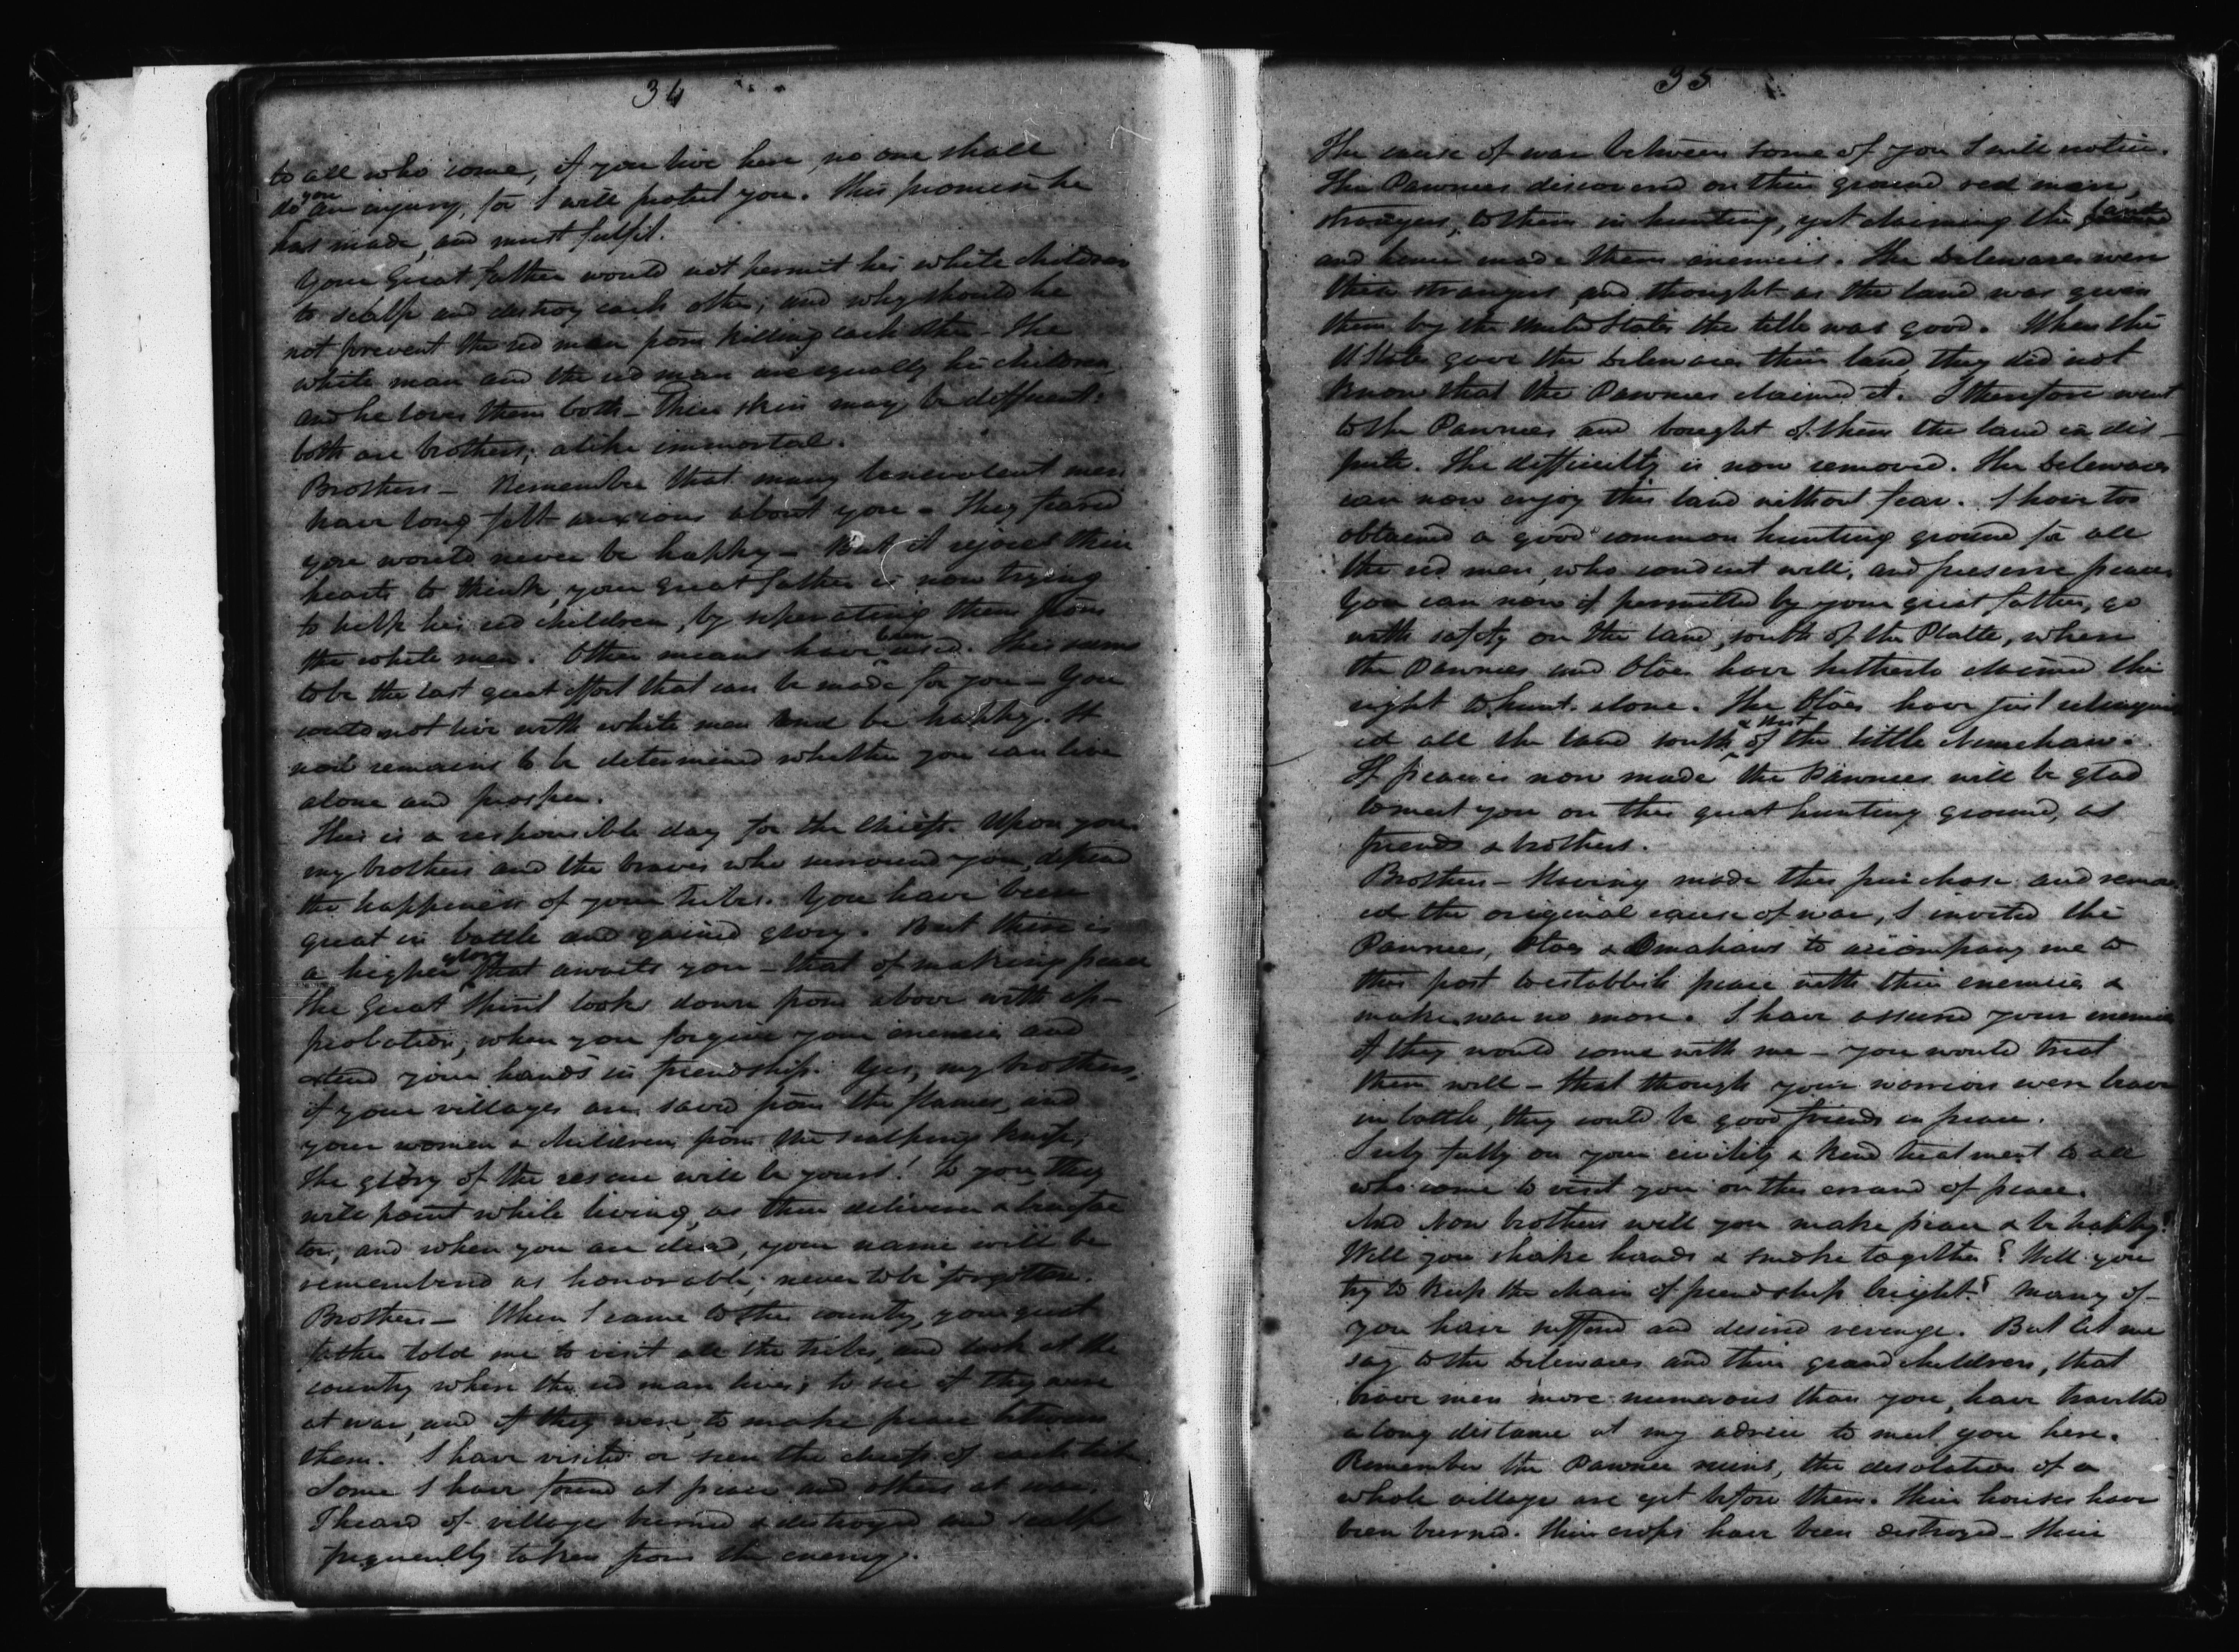 34
to all who come, if you live here, no one shall
do you an injury, for I will protect you. This promise he
has made, and must fulfil.
Your Great father would not permit his white children
to scalp and destroy each other; and why should he
not prevent the red man from killing each other - The
white man and the red man are equally his children,
and he loves them both - Their skin may be different:
both are brothers; alike immortal.
Brothers - Remember that many benevolent men
have long felt anxious about you - They feared
you would never be happy - But it rejoices their
hearts to think, your great father is now trying
to help his red children, by seperating them from
the white men. Other means have been used. This seems
to be the last great effort that can be made for you - You
could not live with white men and be happy. It
now remains to be determined whether you can live
alone and prosper.
This is a responsible day for the Chiefs. Upon you
my brothers and the braves who surround you, depend
the happiness of your tribes. You have been
great in battle and gained glory. But there is
a higher glory that awaits you - that of making peace
The Great Spirit looks down from above with ap-
probation, when you forgive your enemies and
extend your hands in friendship. Yes, my brothers,
if your villages are saved from the flames, and
your women & children from the scalping knife,
the glory of the rescue will be yours! To you, they
will point while living, as their deliverer & benefac
tor, and when you are dead, your name will be
remembered as honorable, never to be forgotten.
Brothers - When I came to this country, your great
father told me to visit all the tribes, and look at the
country where the red man lives; to see if they were
at war, and if they were, to make peace between
them. I have visited or seen the chiefs of each tribe.
Some I have found at peace and others at war.
I heard of villages burned & destroyed and scalps
frequently taken from the enemy.
35
The cause of war between some of you I will notice.
The Pawnees discovered on their ground red men,
strangers, to them in hunting, yet claiming the land
and hence made them enemies. The Delewares were
these strangers and thought as the land was given
them by the United States the title was good. When the
U States gave the Delewares their land, they did not
know that the Pawnees claimed it. I therefore went
to the Pawnees and bought of them the land in dis-
pute. The difficulty is now removed. The Delewares
can now enjoy this land without fear. I have too
obtained a good common hunting ground for all
the red men, who conduct well, and preserve peace.
You can now if permitted by your great father, go
with safety on the land, south of the Platte, where
the Pawnees and Otoes have hitherto claimed the
right to hunt alone. The Otoes have just relinquish
ed all the land south & west of the little Nemehaw.
If peace is now made the Pawnees will be glad
to meet you on this great hunting ground, as
friends & brothers.
Brothers - Having made this purchase and remov
ed the original cause of war, I invited the
Pawnees, Otoes & Omahaws to accompany me to
this post to establish peace with their enemies &
make war no more. I have assured your enemies
if they would come with me - you would treat
them well - that though your warriors were brave
in battle, they could be good friends in peace.
I rely fully on your civility & kind treatment to all
who come to visit you on this errand of peace.
And Now brothers will you make peace & be happy?
Will you shake hands & smoke together? Will you
try to keep the chain of friendship bright? Many of
you have suffered and desired revenge. But let me
say to the Delewares and their grand children, that
brave men more numerous than you, have travelled
a long distance at my advice to meet you here.
Remember the Pawnee ruins, the desolation of a
whole village are yet before them. Their houses have
been burned. Their crops have been destroyed - their